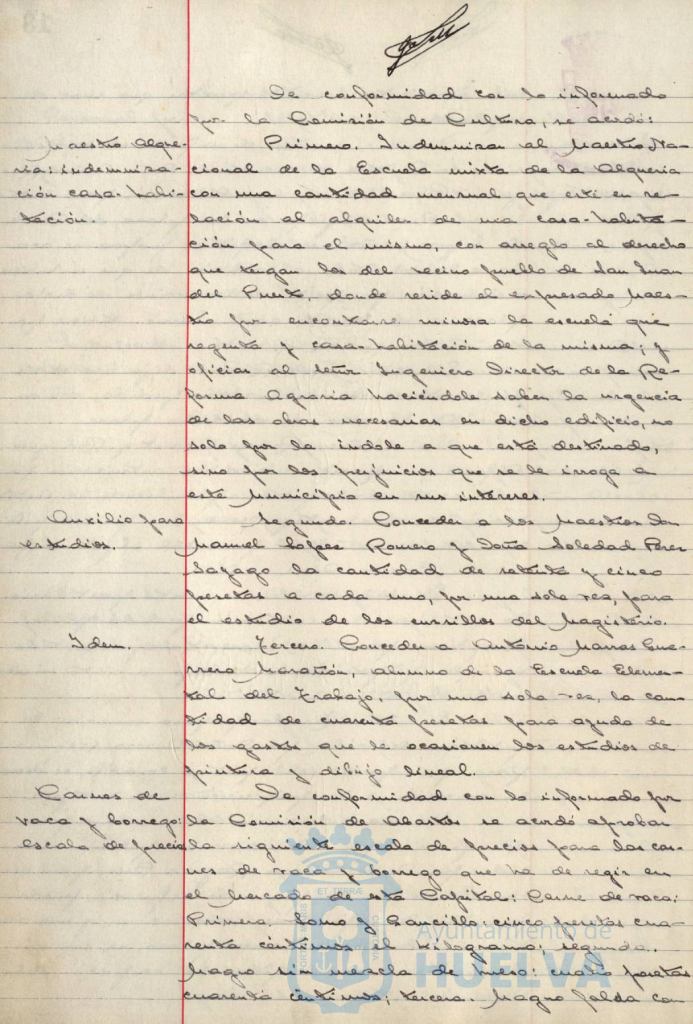 De conformidad con lo informado
por la Comisión de Cultura, se acordó:
Maestro Alque-
ria: indemniza-
ción casa-habi-
tación.
Primero. Indemnizar al Maestro Na-
cional de la Escuela mixta de la Alqueria
con una cantidad mensual que esté en re-
lación al alquiler de una casa-habita-
ción para el mismo, con arreglo al derecho
que tengan los del vecino pueblo de San Juan
del Puerto, donde reside el expresado Maes-
tro por encontrarse ruinosa la escuela que
regenta y casa-habitación de la misma; y
oficiar al señor Ingeniero Director de la Re-
forma Agraria haciéndole saber la urgencia
de las obras necesarias en dicho edificio, no
solo por la indole a que está destinado,
sino por los perjuicios que se le irroga a
este Municipio en sus intereses.
Auxilio para
estudios.
Segundo. Conceder a los Maestros Don
Manuel Lopez Romero y Doña Soledad Perez
Sayago la cantidad de setenta y cinco
pesetas a cada uno, por una sola vez, para
el estudio de los cursillos del Magisterio.
Idem.
Tercero. Conceder a Antonio Gue-
rrero Marañón, alumno de la Escuela Elemen-
tal del Trabajo, por una sola vez, la can-
tidad de cuarenta pesetas para ayuda de
los gastos que le ocasionen los estudios de
pintura y dibujo lineal.
Carnes de
vaca y borrego:
escala de precios
De conformidad con lo informado por
la Comisión de Abastos se acordó aprobar
la siguiente escala de precios para las car-
nes de vaca y borrego que ha de regir en
el Mercado de esta Capital: Carne de vaca:
Primera. Lomo y : cinco pesetas cua-
renta céntimos el kilogramo; segunda.
Magro sin mezcla de hueso: cuatro pesetas
cuarenta céntimos; tercera. Magro falda con
Ayuntamiento de
HUELVA